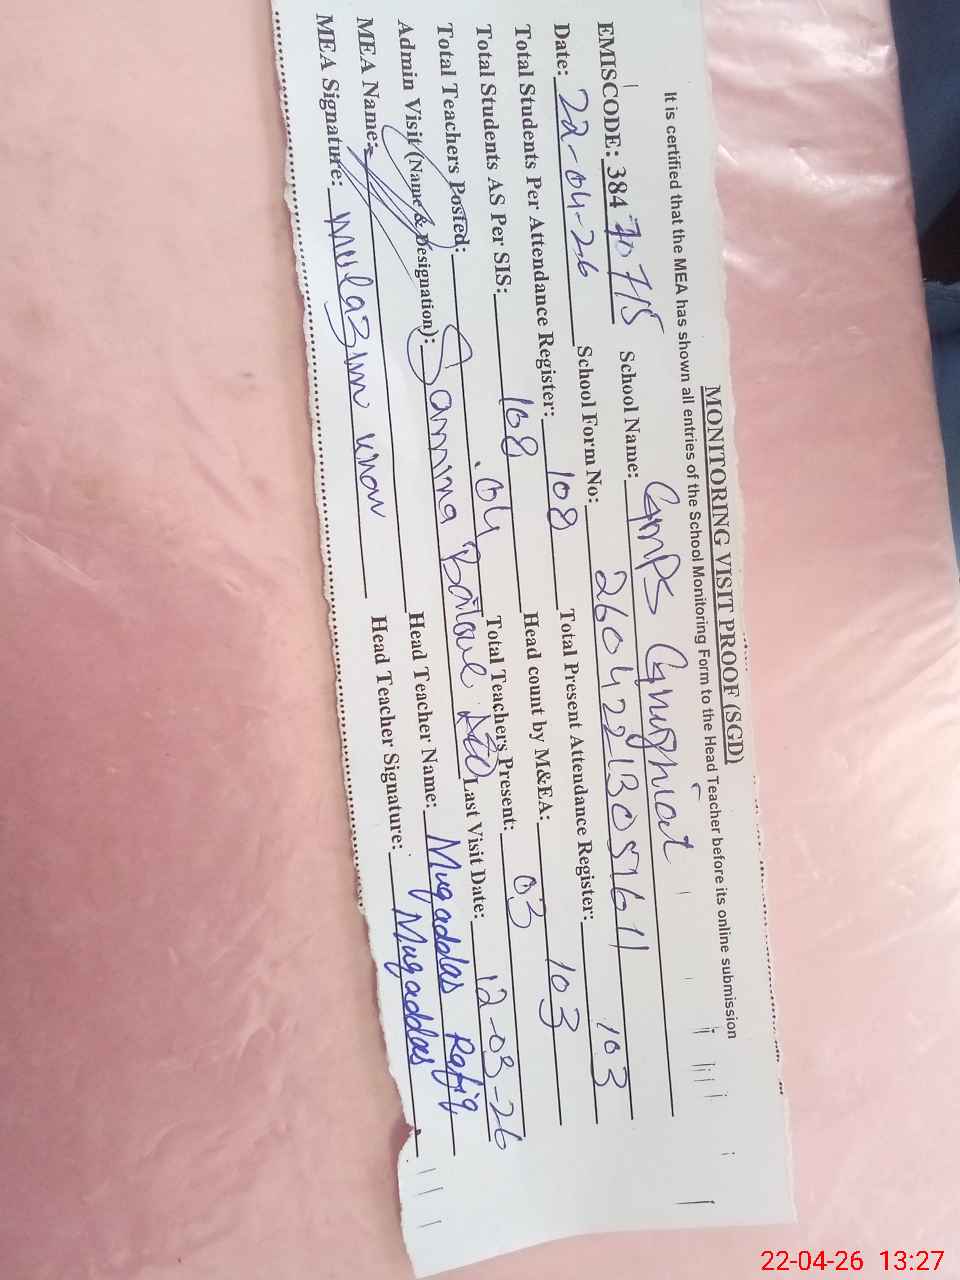 MONITORING VISIT PROOF (SGD)
It is certified that the MEA has shown all entries of the School Monitoring Form to the Head Teacher before its online submission
EMISCODE: 38470715 School Name: GMPS Ghughiat
Date: 22-04-26 School Form No: 26042213059611
Total Students Per Attendance Register: 108 Total Present Attendance Register: 103
Total Students AS Per SIS: 108 Head count by M&EA: 103
Total Teachers Posted: 04 Total Teachers Present: 03
Admin Visit (Name & Designation): Samina Batool AEO Last Visit Date: 12-03-26
MEA Name: Head Teacher Name: Muqaddas Rafiq
MEA Signature: Mulazim Khan Head Teacher Signature: Muqaddas
22-04-26 13:27